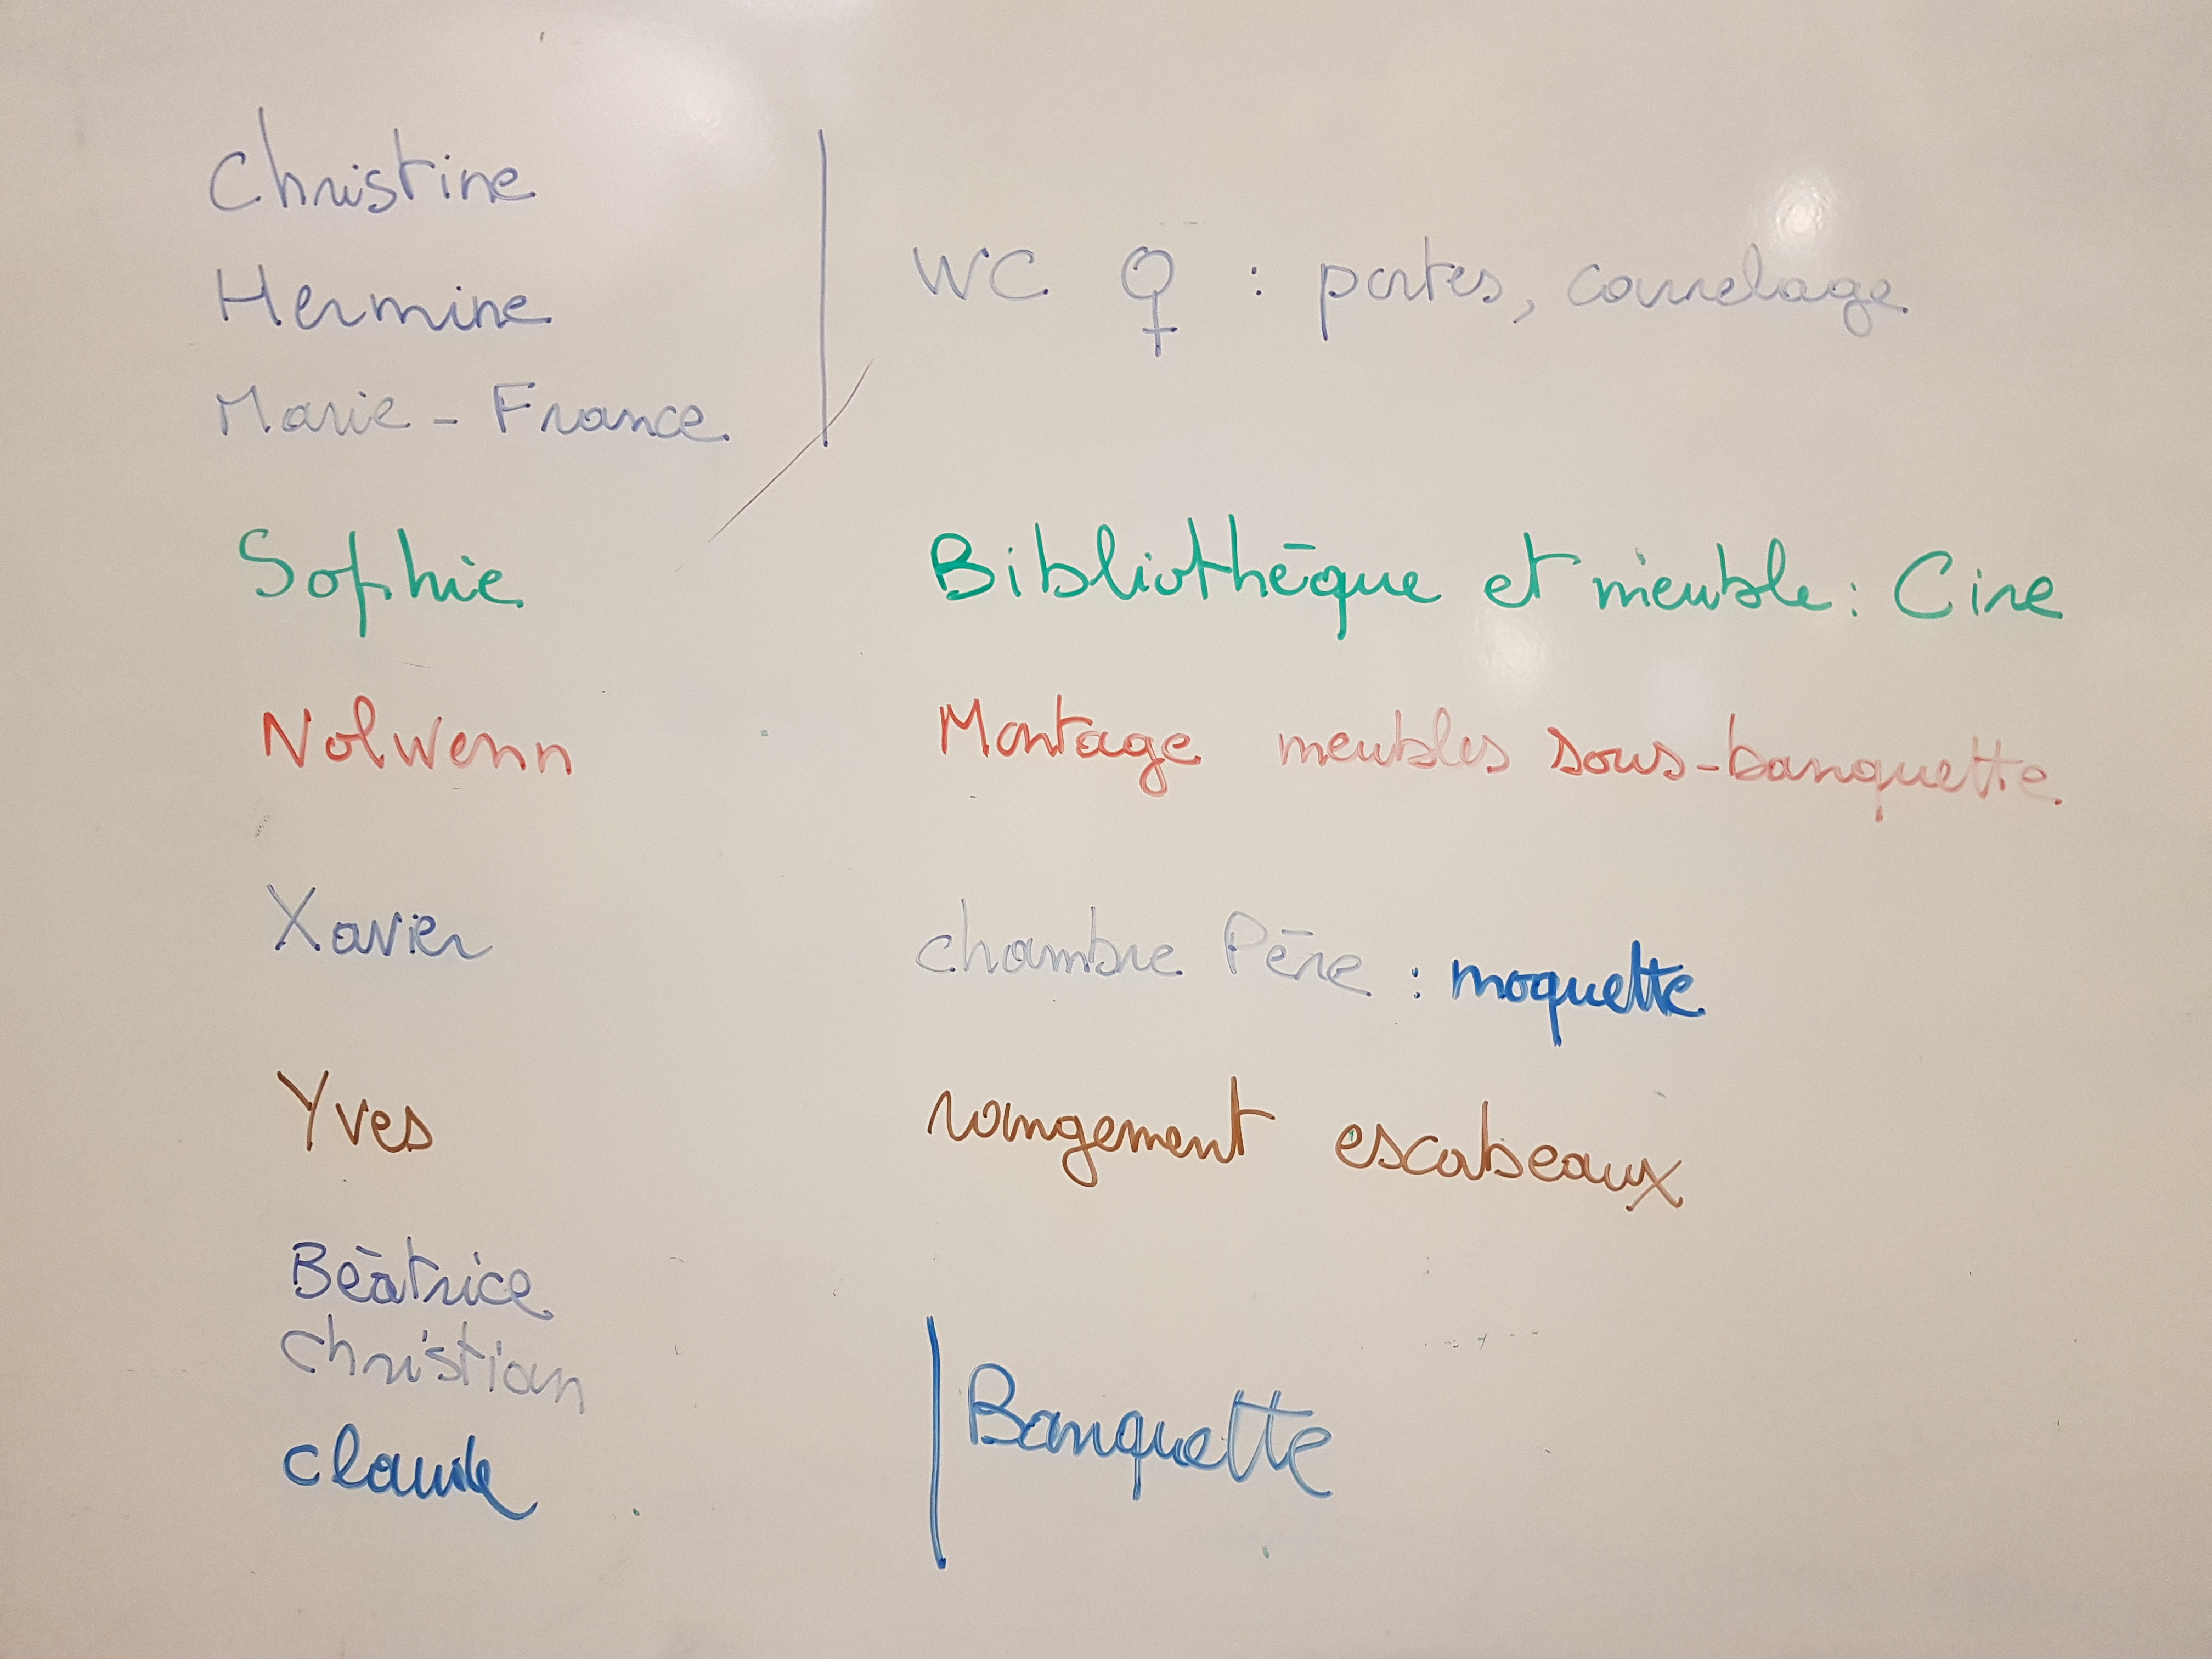 Christine
Hermine
Marie-France
WC ♀ : portes, carrelage
Sophie
Bibliothèque et meuble : Cire
Nolwenn
Montage meubles sous-banquette
Xavier
chambre Père : moquette
Yves
rangement escabeaux
Béatrice
Christian
Claude
Banquette